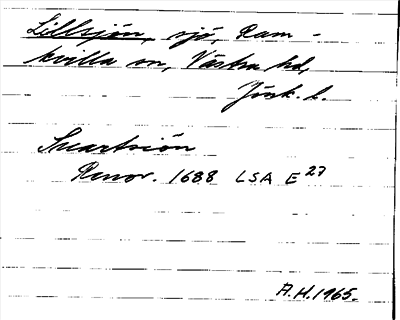 Lillsjön, sjö, Ram-
kvilla sn, Västra hd,
Jönk. l.
Svartsiön
Renov. 1688 LSA E 27
A.H. 1965.